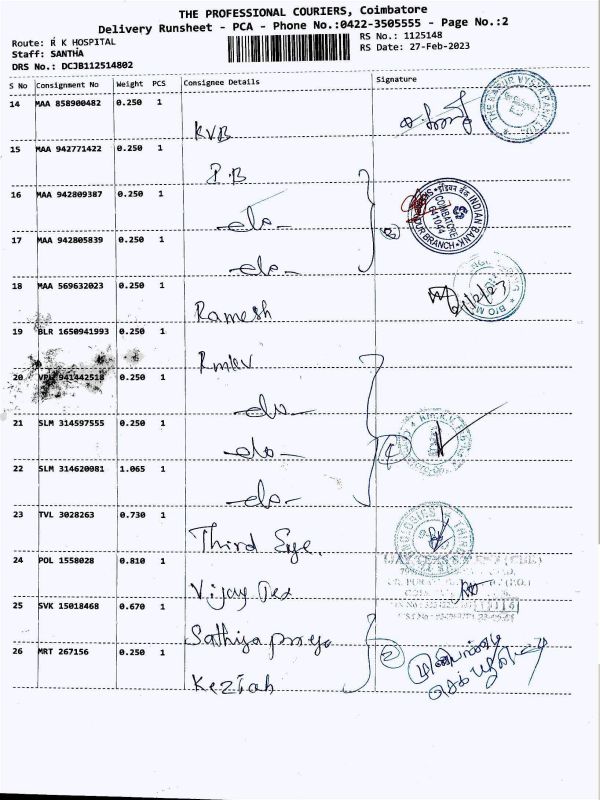 THE PROFESSIONAL COURIERS, Coimbatore
Delivery Runsheet - PCA - Phone No.:0422-3505555 - Page No.:2
Route: R K HOSPITAL
Staff: SANTHA
DRS No.: DCJB112514802
RS No.: 1125148
RS Date: 27-Feb-2023
S No Consignment No Weight PCS Consignee Details Signature
14 MAA 858900482 0.250 1
KVB
15 MAA 942771422 0.250 1
I.B
16 MAA 942809387 0.250 1
-do-
17 MAA 942805839 0.250 1
-do-
INDIAN BANK
COIMBATORE
641044
BRANCH
18 MAA 569632023 0.250 1
Ramesh
19 BLR 1650941993 0.250 1
Rmkv
20 VPI 941442518 0.250 1
-do-
21 SLM 314597555 0.250 1
-do-
22 SLM 314620081 1.065 1
-do-
23 TVL 3028263 0.730 1
Third Eye.
24 POL 1558028 0.810 1
Vijay Tex
25 SVK 15018468 0.670 1
Sathiya priya
26 MRT 267156 0.250 1
Keziah